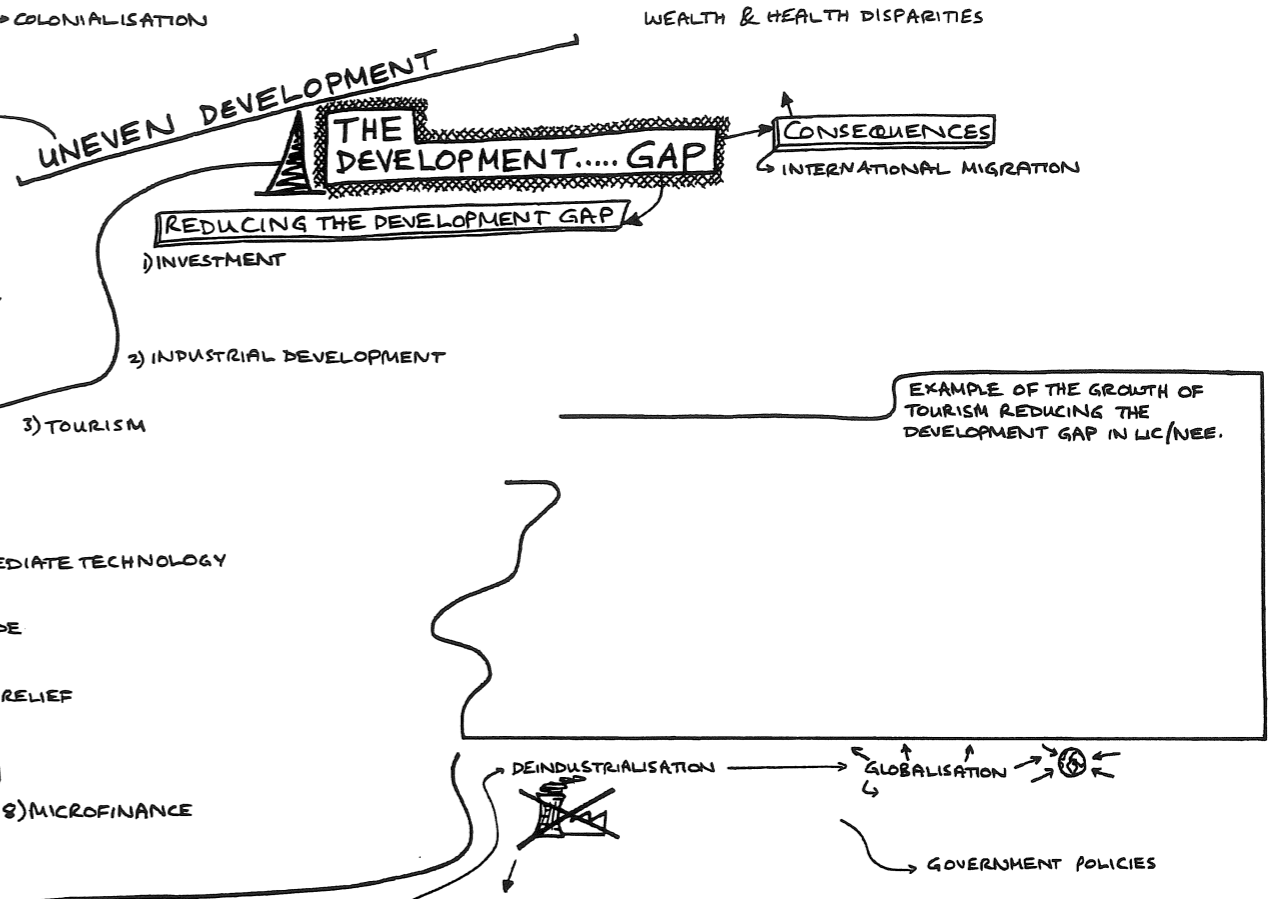 COLONIALISATION
WEALTH & HEALTH DISPARITIES
UNEVEN DEVELOPMENT
THE
DEVELOPMENT..... GAP
CONSEQUENCES
INTERNATIONAL MIGRATION
REDUCING THE DEVELOPMENT GAP
1) INVESTMENT
2) INDUSTRIAL DEVELOPMENT
3) TOURISM
EXAMPLE OF THE GROWTH OF
TOURISM REDUCING THE
DEVELOPMENT GAP IN LIC/NEE.
EDIATE TECHNOLOGY
DE
RELIEF
8) MICROFINANCE
DEINDUSTRIALISATION
GLOBALISATION
GOVERNMENT POLICIES